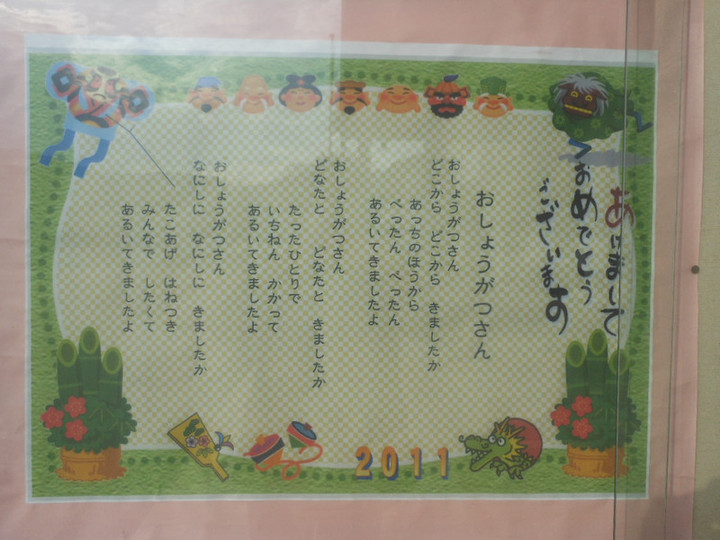 あけまして
おめでとう
ございます
おしょうがつさん
おしょうがつさん
どこから どこから きましたか
あっちのほうから
ぺったん ぺったん
あるいてきましたよ
おしょうがつさん
どなたと どなたと きましたか
たったひとりで
いちねん かかって
あるいてきましたよ
おしょうがつさん
なにしに なにしに きましたか
たこあげ はねつき
みんなで したくて
あるいてきましたよ
2011